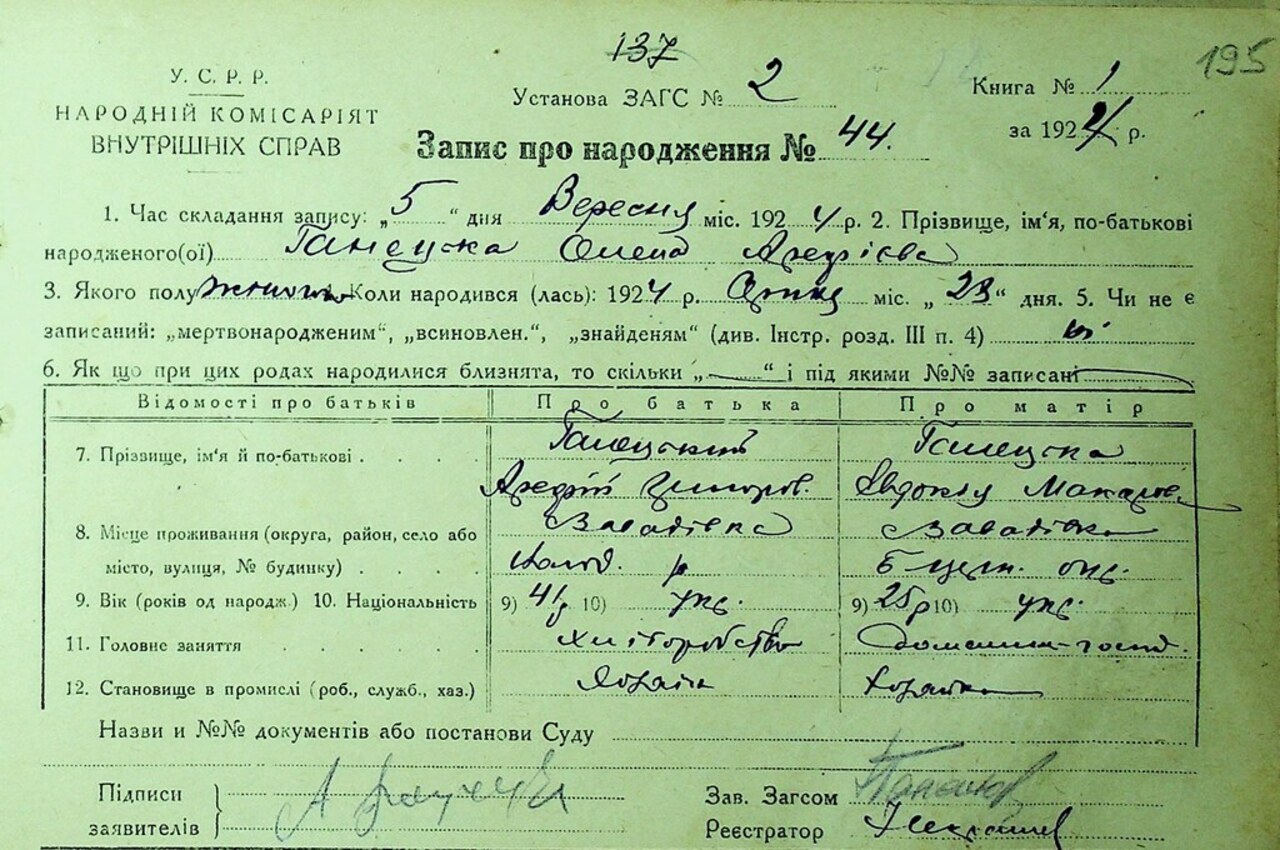 137
195
У. С. Р. Р.
НАРОДНІЙ КОМІСАРІЯТ
ВНУТРІШНІХ СПРАВ
Установа ЗАГС № 2
Книга № 1
за 1924 р.
Запис про народження № 44.
1. Час складання запису: „5“ дня Вересня міс. 1924 р. 2. Прізвище, ім'я, по-батькові
народженого(ої) Олена
3. Якого полу Коли народився (лась): 1924 р. міс. „23“ дня. 5. Чи не є
записаний: „мертвонародженим“, „всиновлен.“, „знайденям“ (див. Інстр. розд. III п. 4) ні
6. Як що при цих родах народилися близнята, то скільки „ “ і під якими №№ записані
Відомості про батьків Про батька Про матір
7. Прізвище, ім'я й по-батькові
Андрій Григоров. Євдокія Макаров.
8. Місце проживання (округа, район, село або Завадівка Завадівка
місто, вулиця, № будинку) р Б церк. окр.
9. Вік (років од народж.) 10. Національність 9) 41 р 10) укр. 9) 25 р 10) укр.
11. Головне заняття хліборобство домашн. госп.
12. Становище в промислі (роб., служб., хаз.) хазяїн хазяйка
Назви и №№ документів або постанови Суду
Підписи
заявителів
Зав. Загсом
Реєстратор